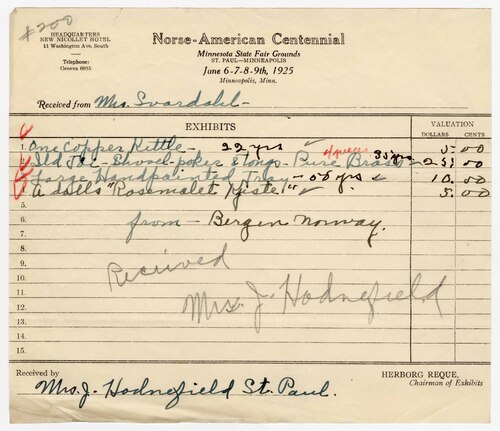 #200
HEADQUARTERS
NEW NICOLLET HOTEL
11 Washington Ave. South
Telephone:
Geneva 6935
Norse-American Centennial
Minnesota State Fair Grounds
ST. PAUL—MINNEAPOLIS
June 6-7-8-9th, 1925
Minneapolis, Minn.
Received from Mrs. Svardahl-
EXHIBITS
VALUATION
DOLLARS CENTS
1. One Copper Kettle - 22 yrs 5.00
2. Shovel-poker & tongs - Pure Brass 35 yrs 25.00
3. Large Handpainted Tray - 50 yrs 10.00
4. a dolls "Rosemalet Kiste" 5.00
5.
6. from - Bergen Norway.
7.
8.
9. Received
10. Mrs. J. Hodnefield
11.
12.
13.
14.
15.
Received by
Mrs. J. Hodnefield St. Paul.
HERBORG REQUE,
Chairman of Exhibits